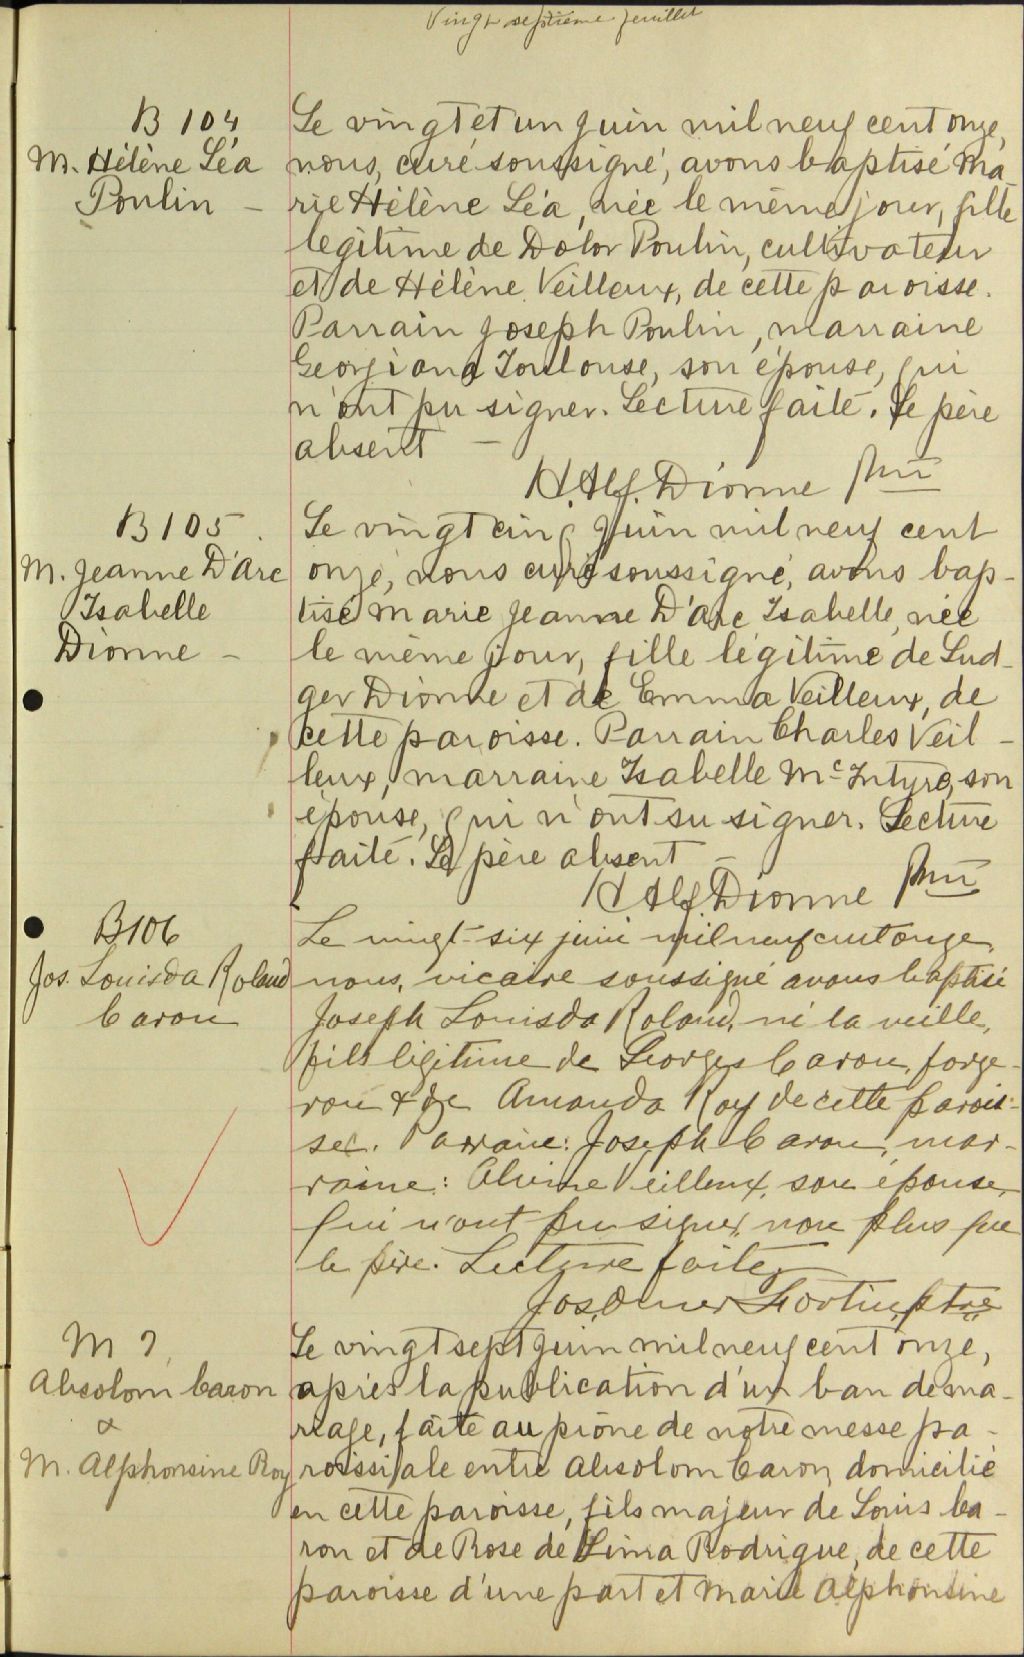 Vingt septième feuillet
B 104
M. Hélène Léa
Poulin -
Le vingt et un juin mil neuf cent onze,
nous, curé soussigné, avons baptisé Ma-
rie Hélène Léa, née le même jour, fille
légitime de Dolor Poulin, cultivateur
et de Hélène Veilleux, de cette paroisse.
Parrain Joseph Poulin, marraine
Georgiana Toulouse, son épouse, qui
n'ont pu signer. Lecture faite. Le père
absent -
H. Alf. Dionne ptre
B 105
M. Jeanne D'Arc
Isabelle
Dionne -
Le vingt cinq juin mil neuf cent
onze, nous curé soussigné, avons bap-
tisé Marie Jeanne D'Arc Isabelle, née
le même jour, fille légitime de Lud-
ger Dionne et de Emma Veilleux, de
cette paroisse. Parrain Charles Veil-
leux, marraine Isabelle McIntyre, son
épouse, qui n'ont su signer. Lecture
faite. Le père absent -
H Alf. Dionne ptre
B106
Jos. Louisda Roland
Caron
Le vingt-six juin mil neuf cent onze,
nous, vicaire soussigné avons baptisé
Joseph Louisda Roland, né la veille,
fils légitime de Georges Caron, forge-
ron & de Amanda Roy de cette parois-
se. Parrain: Joseph Caron, mar-
raine: Alvine Veilleux, son épouse,
qui n'ont pu signer, non plus que
le père. Lecture faite.
Jos. Omer Fortin, ptre
M 7
Absolom Caron
&
M. Alphonsine Roy
Le vingt sept juin mil neuf cent onze,
après la publication d'un ban de ma-
riage, faite au prône de notre messe pa-
roissiale entre Absolom Caron, domicilié
en cette paroisse, fils majeur de Louis Ca-
ron et de Rose de Lima Rodrigue, de cette
paroisse d'une part et Marie Alphonsine